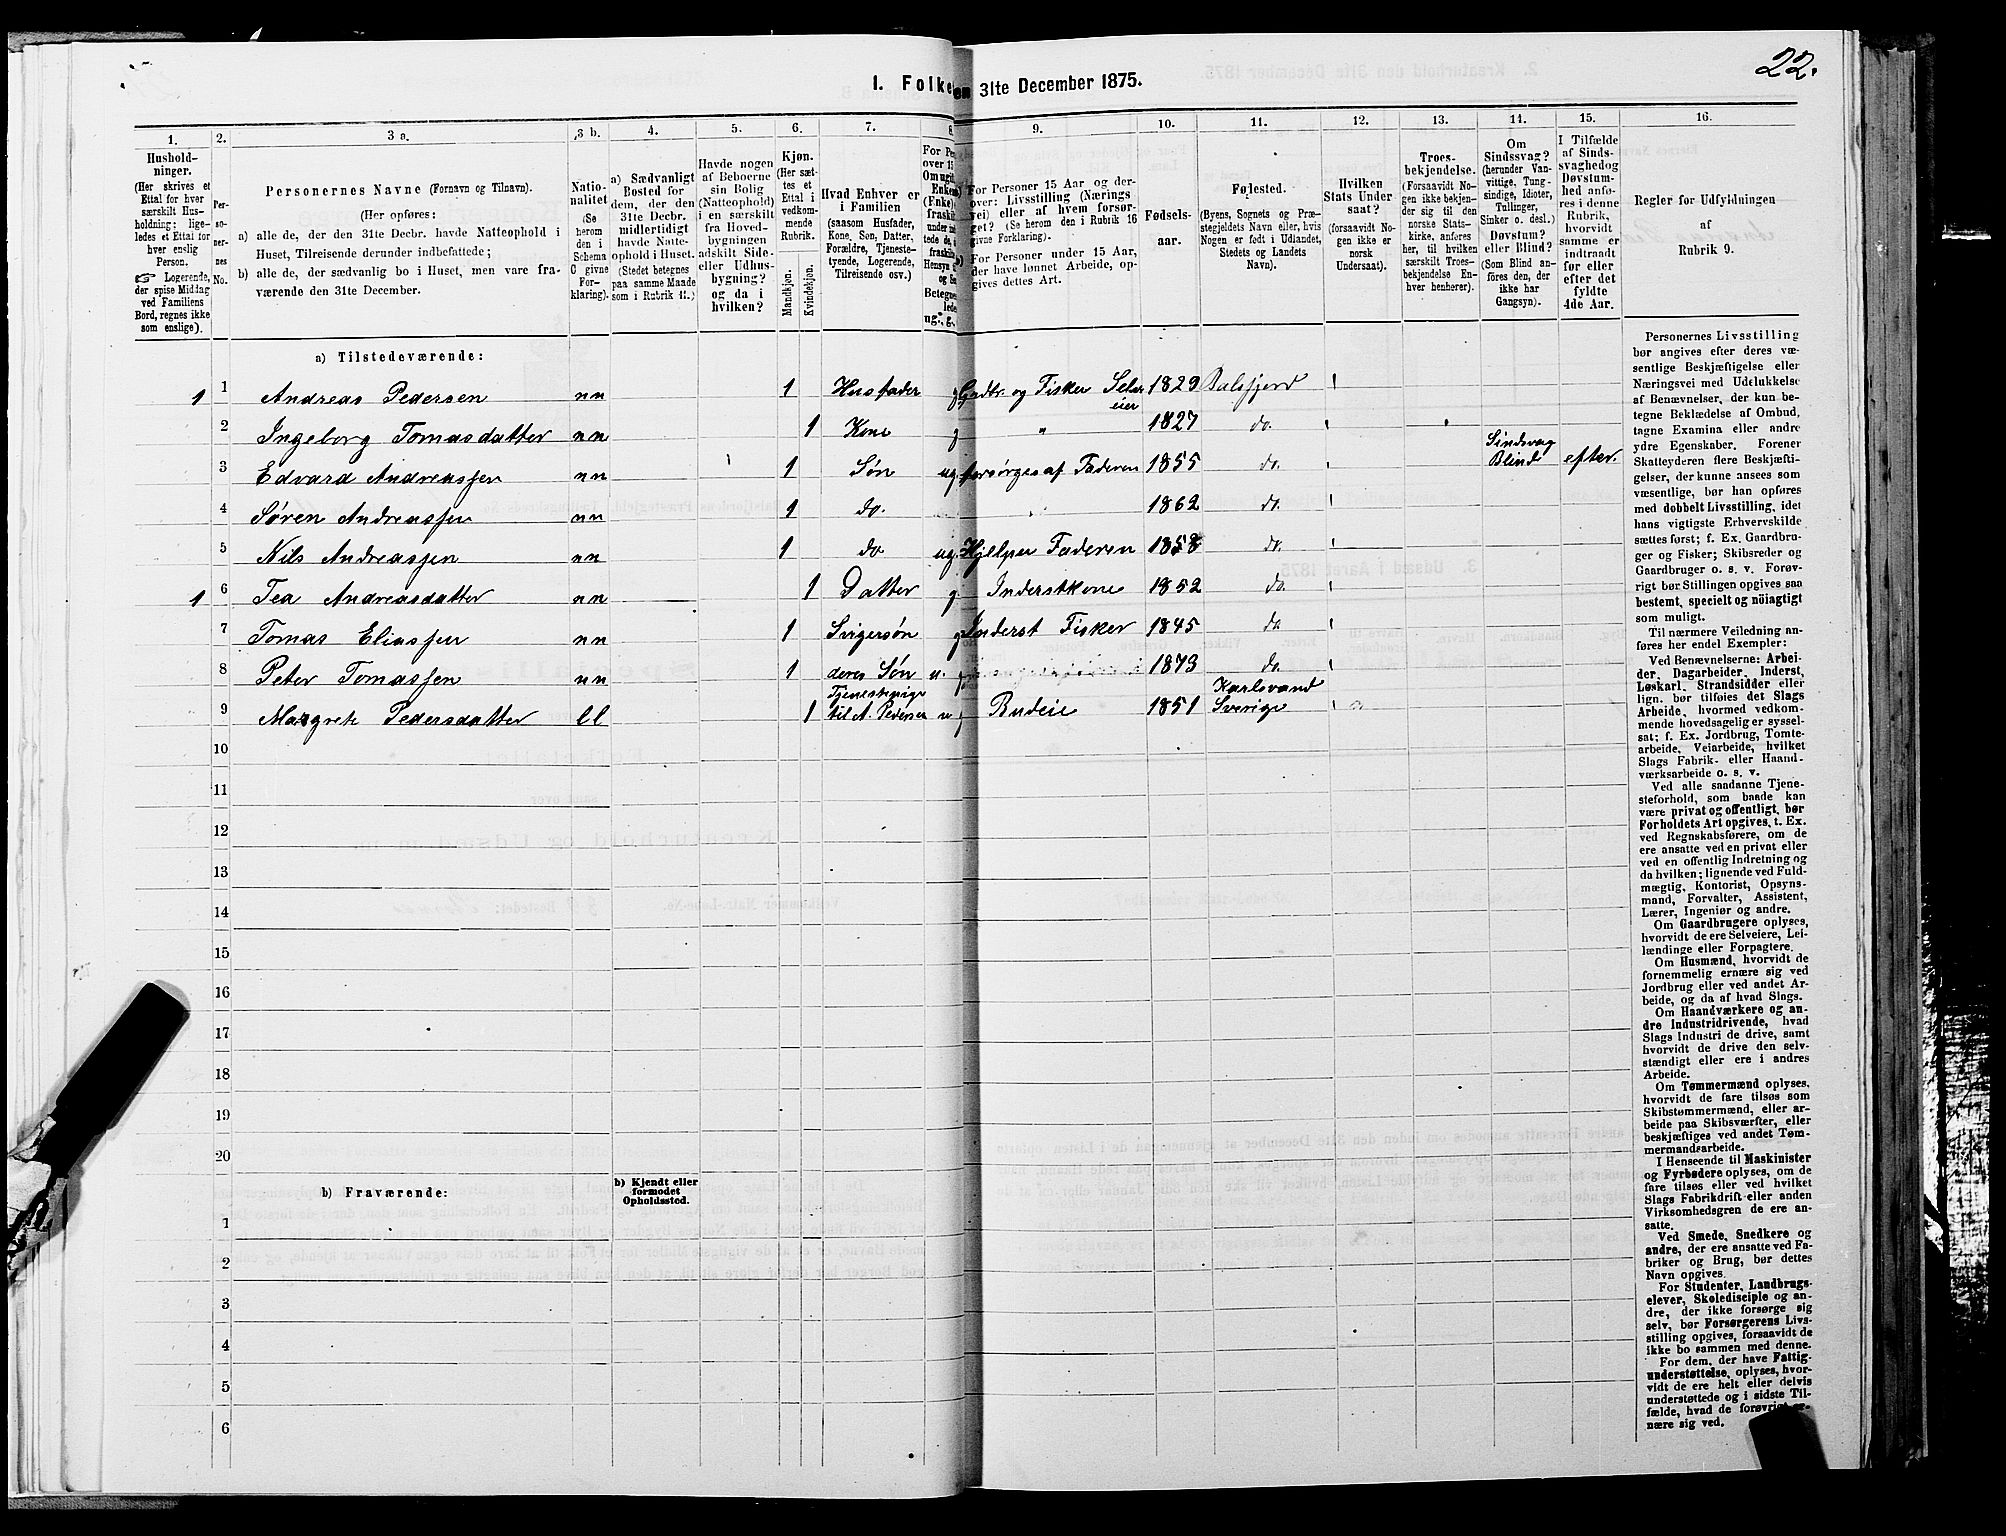 22.
1. Folke en 31te December 1875.
1. 2. 3 a. 3 b. 4. 5. 6. 7. 8. 9. 10. 11. 12. 13. 14. 15. 16.
Hushold-
ninger.
(Her skrives et
Ettal for hver
særskilt Hus-
holdning; lige-
ledes et Ettal for
hver enslig
Person.
☞ Logerende,
der spise Middag
ved Familiens
Bord, regnes ikke
som enslige).
Per-
so-
ner-
nes
No.
Personernes Navne (Fornavn og Tilnavn).
(Her opføres:
a) alle de, der den 31te Decbr. havde Natteophold i
Huset, Tilreisende derunder indbefattede;
b) alle de, der sædvanlig bo i Huset, men vare fra-
værende den 31te December.
Natio-
nalitet
(Se
herom
den i
Schema
C givne
For-
klaring).
a) Sædvanligt
Bosted for
dem, der den
31te Decbr.
midlertidigt
havde Natte-
ophold i Huset.
(Stedet betegnes
paa samme Maade
som i Rubrik 11.)
Havde nogen
af Beboerne
sin Bolig
(Natteophold)
i en særskilt
fra Hoved-
bygningen
adskilt Side-
eller Udhus-
bygning?
og da i
hvilken?
Kjøn.
(Her sæt-
tes et
Ettal i
vedkom-
mende
Rubrik.
Mandkjøn.
Kvindekjøn.
Hvad Enhver er
i Familien
(saasom Husfader,
Kone, Søn, Datter,
Forældre, Tjeneste-
tyende, Logerende,
Tilreisende osv.)
For Per
over 15
Om ugift
Enkem
(Enke),
fraskilt
under
tede de,
fraskilt
Hensyn
og Se
Betegnes
lede
ug., g.,
a) For Personer 15 Aar og der-
over: Livsstilling (Nærings-
vei) eller af hvem forsør-
get? (Se herom den i Rubrik 16
givne Forklaring).
b) For Personer under 15 Aar,
der have lønnet Arbeide, op-
gives dettes Art.
Fødsels-
aar.
Fødested.
(Byens, Sognets og Præ-
stegjeldets Navn eller, hvis
Nogen er født i Udlandet,
Stedets og Landets
Navn).
Hvilken
Stats Under
saat?
(forsaavidt No-
gen ikke er
norsk
Undersaat).
Troes-
bekjendelse.
(Forsaavidt No-
gen ikke bekjen-
der sig til den
norske Stats-
kirke, anføres
her, til hvilken
særskilt Troes-
bekjendelse En-
hver henhører).
Om
Sindssvag?
(herunder Van-
vittige, Tung-
sindige, Idioter,
Tullinger,
Sinker o. desl.)
Døvstum?
eller Blind?
(Som Blind an-
føres den, der
ikke har
Gangsyn).
I Tilfælde
af Sinds-
svaghed og
Døvstum-
hed anfø-
res i denne
Rubrik,
hvorvidt
samme er
indtraadt
før eller
efter det
fyldte
4de Aar.
Regler for Udfyldningen
af
Rubrik 9.
a) Tilstedeværende:
1 1 Andreas Pedersen nn 1 Husfader g Grdbr. og Fisker Selv 1829 Balsfjord
eier
2 Ingeborg Tomasdatter nn 1 Kone g " 1827 do.
3 Edvard Andreassen nn 1 Søn ug. forsørges af Faderen 1855 do. Sindsvag
Blind efter.
4 Søren Andreassen nn 1 do. 1862 do.
5 Nils Andreassen nn 1 do ug. Hjelper Faderen 1858 do.
1 6 Tea Andreasdatter nn 1 Datter g Inderstkone 1852 do.
7 Tomas Eliassen nn 1 Svigersøn g Inderst Fisker 1845 do
8 Peter Tomassen nn 1 deres Søn u. 1873 do.
9 Margrete Pedersdatter ll 1 Tjenestepige
til A. Pedersen u Budeie 1851 Karlsvand
Sverige
10
11
12
13
14
15
16
17
18
19
20
b) Fraværende:
b) Kjendt eller
formodet
Opholdssted.
1
2
3
4
5
6
Personernes Livsstilling
bør angives efter deres væ-
sentlige Beskjæftigelse eller
Næringsvei med Udelukkelse
af Benævnelser, der kun be-
tegne Beklædelse af Ombud,
tagne Examina eller andre
ydre Egenskaber. Forener
Skatteyderen flere Beskjæfti-
gelser, der kunne ansees som
væsentlige, bør han opføres
med dobbelt Livsstilling, idet
hans vigtigste Erhvervskilde
sættes først; f. Ex. Gaardbru-
ger og Fisker; Skibsreder og
Gaardbruger o. s. v. Forøv-
rigt bør Stillingen opgives saa
bestemt, specielt og nöiagtigt
som muligt.
Til nærmere Veiledning an-
føres her endel Exempler:
Ved Benævnelserne: Arbei-
der, Dagarbeider, Inderst,
Løskarl, Strandsidder eller
lign. bør tilføies det Slags
Arbeide, hvormed vedkom-
mende hovedsagelig er syssel-
sat; f. Ex. Jordbrug, Tomte-
arbeide, Veiarbeide, hvilket
Slags Fabrik- eller Haand-
værksarbeide o. s. v.
Ved alle saadanne Tjene-
steforhold, som baade kan
være privat og offentligt, bør
Forholdets Art opgives, t. Ex.
ved Regnskabsførere, om de
ere ansatte ved en privat eller
ved en offentlig Indretning og
da hvilken; lignende ved Fuld-
mægtig, Kontorist, Opsyns-
mand, Forvalter, Assistent,
Lærer, Ingeniør og andre.
Om Gaardbrugere oplyses,
hvorvidt de ere Selveiere, Lei-
lændinge eller Forpagtere.
Om Husmænd, hvorvidt de
fornemmelig ernære sig ved
Jordbrug eller ved andet Ar-
beide, og da af hvad Slags.
Om Haandværkere og an-
dre Industridrivende, hvad
Slags Industri de drive, samt
hvorvidt de drive den selv-
stændigt eller ere i andres
Arbeide.
Om Tømmermænd oplyses,
hvorvidt de fare tilsøs som
Skibstømmermænd, eller ar-
beide paa Skibsværfter, eller
beskjæftiges ved andet Tøm-
mermandsarbeide.
I Henseende til Maskinister
og Fyrbødere oplyses, om de
fare tilsøs eller ved hvilket
Slags Fabrikdrift eller anden
Virksomhedsgren de ere an-
satte.
Ved Smede, Snedkere og
andre, der ere ansatte ved Fa-
briker og Brug, bør dettes
Navn opgives.
For Studenter, Landbrugs-
elever, Skoledisciple og an-
dre, der ikke forsørge sig
selv, bør Forsørgerens Livs-
stilling opgives, forsaavidt de
ikke bo sammen med denne.
For dem, der have Fattig-
understøttelse, oplyses, hvor-
vidt de ere helt eller delvis
understøttede og i sidste Til-
fælde, hvad de forøvrigt er-
nære sig ved.